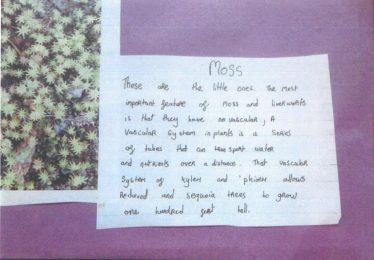 Moss
These are the little ones. The most
important feature of moss and liverworts
is that they have no vascular, A
vascular System in plants is a series
of tubes that can transport water
and nutrients over a distance. That vascular
System of xylem and phloem allows
Redwood and sequoia trees to grow
one hundred feet tall.